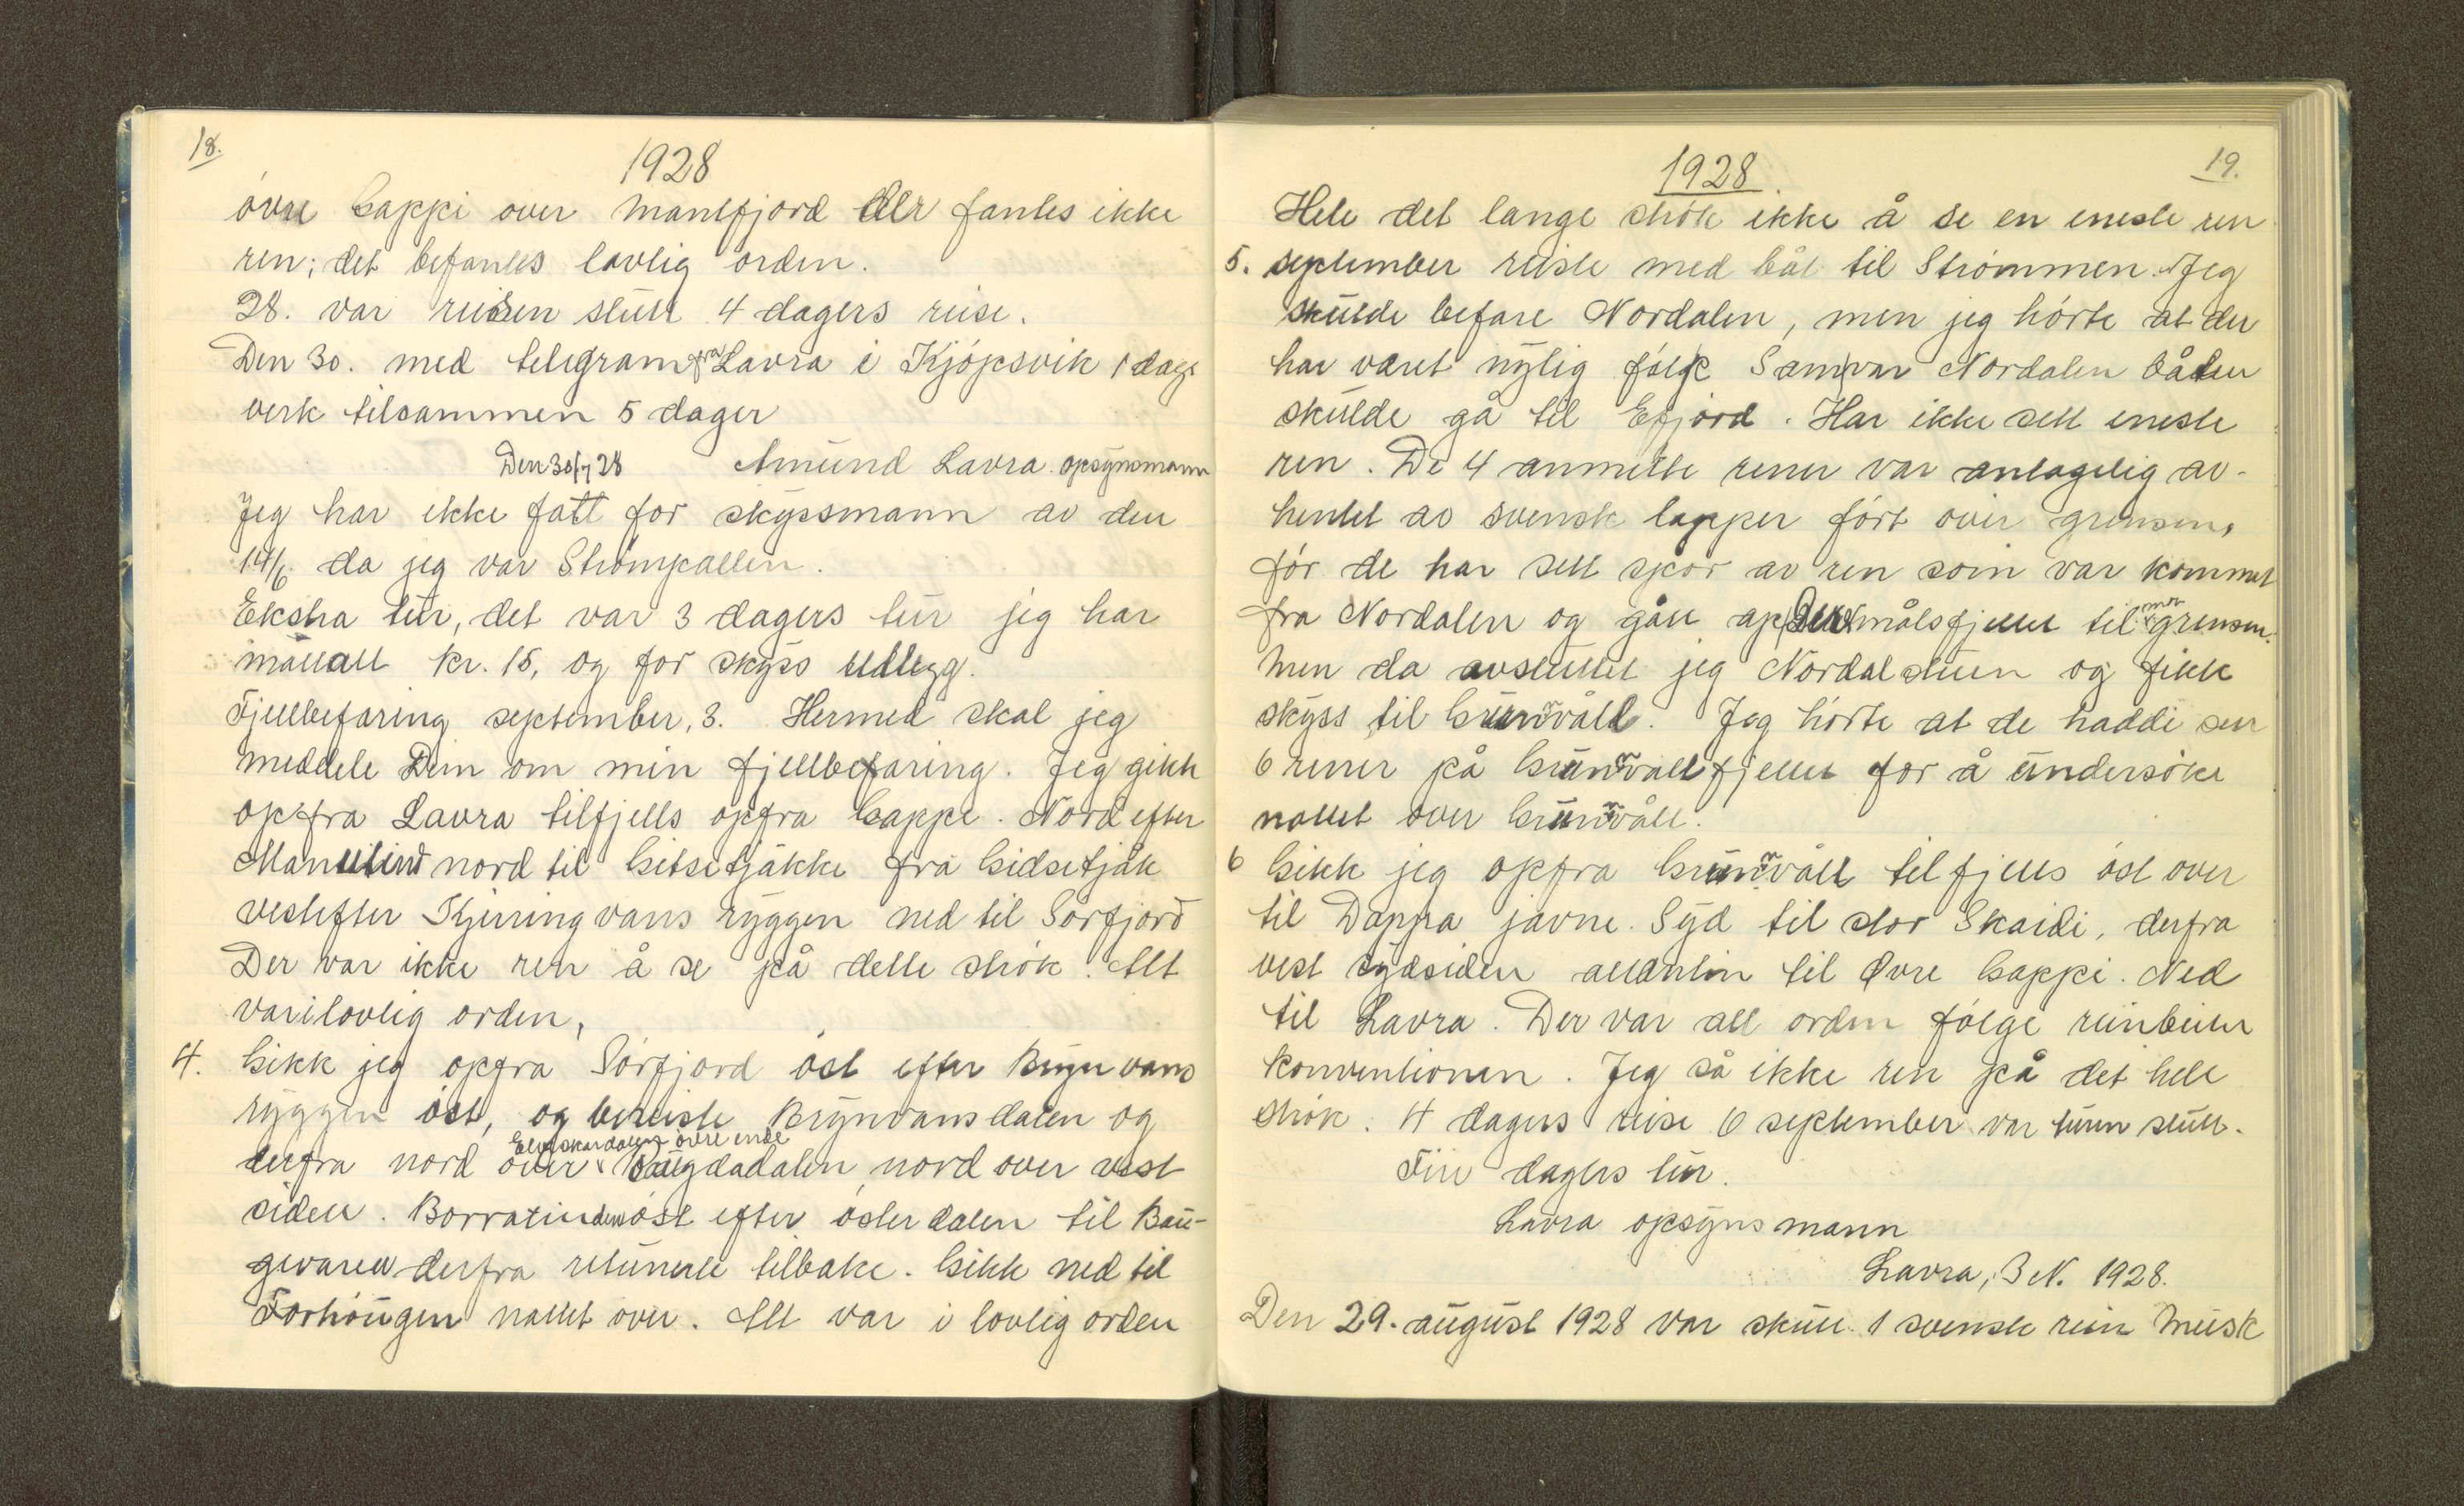 18.
1928
övre Gappi over Manfjord der fantes ikke
ren; det befantes lovlig orden.
28. var reisen slutt 4 dagers reise.
Den 30. med telegram fra Lavra i Kjöpsvik 1 dags
verk tilsammen 5 dager
Den 30/7 28 Amund Lavra. opsynsmann
Jeg har ikke fått for skyssmann av den
14/6. da jeg var Strömpallen.
Ekstra tur, det var 3 dagers tur jeg har
mottatt kr. 15, og for skyss utlegg.
Fjellbefaring september, 3. Hermed skal jeg
meddele Dem om min fjellbefaring. Jeg gikk
opfra Lavra tilfjells opfra Gappe. Nord efter
Manntind nord til Gitsetjåkke fra Gidsetjåk
vestefter Kjerringvans ryggen ned til Sörfjord
Der var ikke ren å se på dette strök. Alt
var i lovlig orden,
4. Gikk jeg opfra Sörfjord öst efter Brynvans
ryggen öst, og bereiste Brynvansdalen og
Elveskardalens övre ende
derfra nord over Baugdadalen nord over vest
siden. Borratinden öst efter österdalen til Bau-
gevaren derfra retunerte tilbake. Gikk ned til
Forhaugen nattet over. Alt var i lovlig orden
1928.
19.
Hele det lange strök ikke å se en eneste ren
5. september reiste med båt til Strömmen. Jeg
skulde befare Nordalen, men jeg hörte at der
har været nylig folk Sam var Nordalen båten
skulde gå til Efjord. Har ikke sett eneste
ren. De 4 anmelte rener var antagelig av-
hentet av svensk lapper fört over grensen,
för de har sett spor av ren som var kommet
fra Nordalen og gått op målsfjellet til mot grensen.
Men da avsluttet jeg Nordal turen og fikk
skyss til Grunvåll. Jeg hörte at de hadde sett
6 rener på Grunvallfjellet for å undersöke
nattet over Grunvåll.
6 Gikk jeg opfra Grunvåll tilfjells öst over
til Dappa javne. Syd til stor Skaidi, derfra
vest sydsiden til Övre Gappi. Ned
til Lavra. Der var alt orden fölge reinbeite
konventionen. Jeg så ikke ren på det hele
strök. 4 dagers reise 6 september var turen slutt.
Fire dagers tur.
Lavra opsyns mann
Lavra, 3 N. 1928.
Den 29. august 1928 var skutt 1 svensk rein Musk